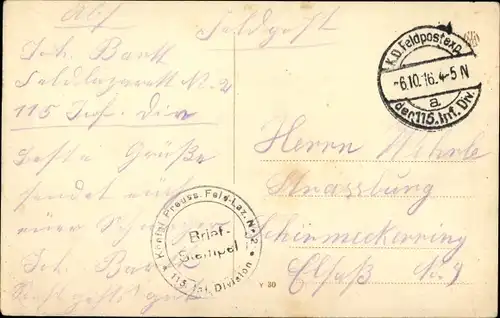 Abs
Feldpost
Joh. Bartl
Feldlazarett No 2
115 Inf. Div
Beste Grüße
sendet euch
euer
Joh. Bartl
K.D. Feldpostexp.
-6.10.16.4-5 N
a
der 115. Inf. Div.
Königl. Preuss. Feld-Laz. No 2
Brief-
Stempel
115. Inf. Division
Herrn
Strassburg
Schirmeckerring
Elsaß No 9
Y 30